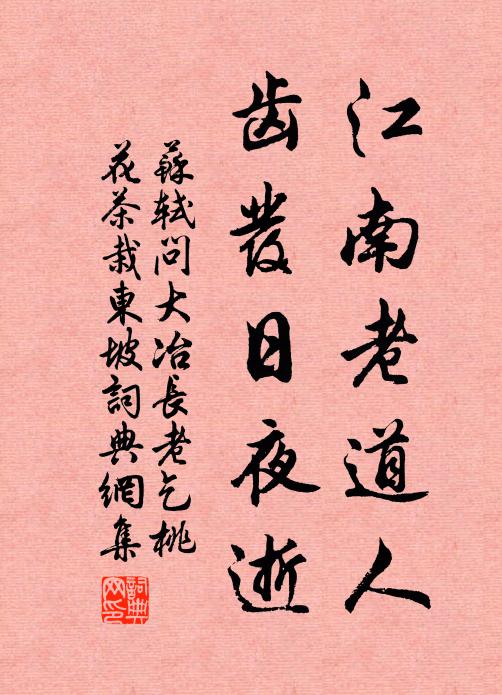 江南老道人
齿發日夜逝
蘇軾問大冶長老乞桃
花茶栽東坡詞典網集
詞典
网印